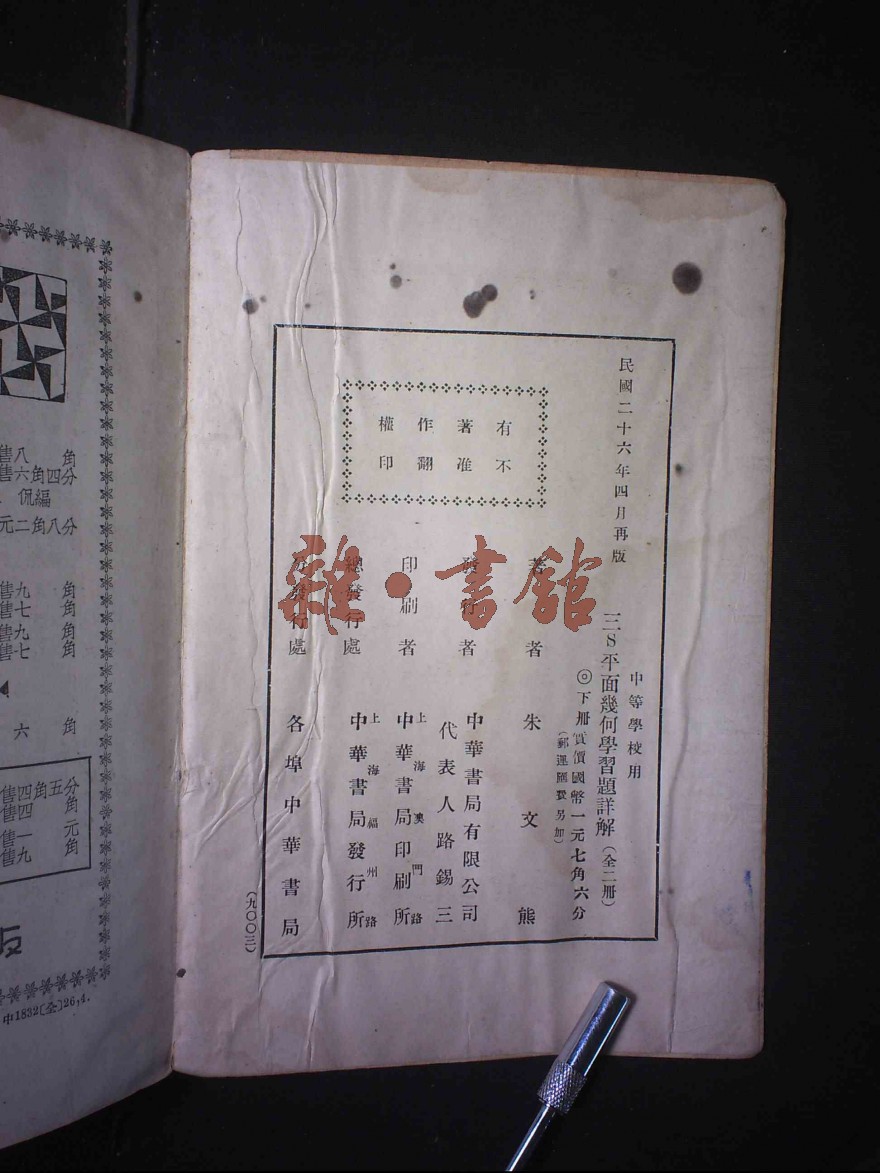 民國二十六年四月再版
有不
著准
作翻
權印
中等學校用
三S平面幾何學習題詳解(全二冊)
◎下冊實價國幣一元七角六分
(郵運匯費另加)
著者 朱文熊
發行者 中華書局有限公司
代表人路錫三
印刷者 上海澳門路
中華書局印刷所
總發行處 上海福州路
中華書局發行所
分發行處 各埠中華書局
(九〇〇三)
雜·書館
售八角
售六角四分
侃編
元二角八分
售九角
售七角
售九角
售七角
六角
售四角五分
售四角
售一元
售九角
中1832(全)26,4.